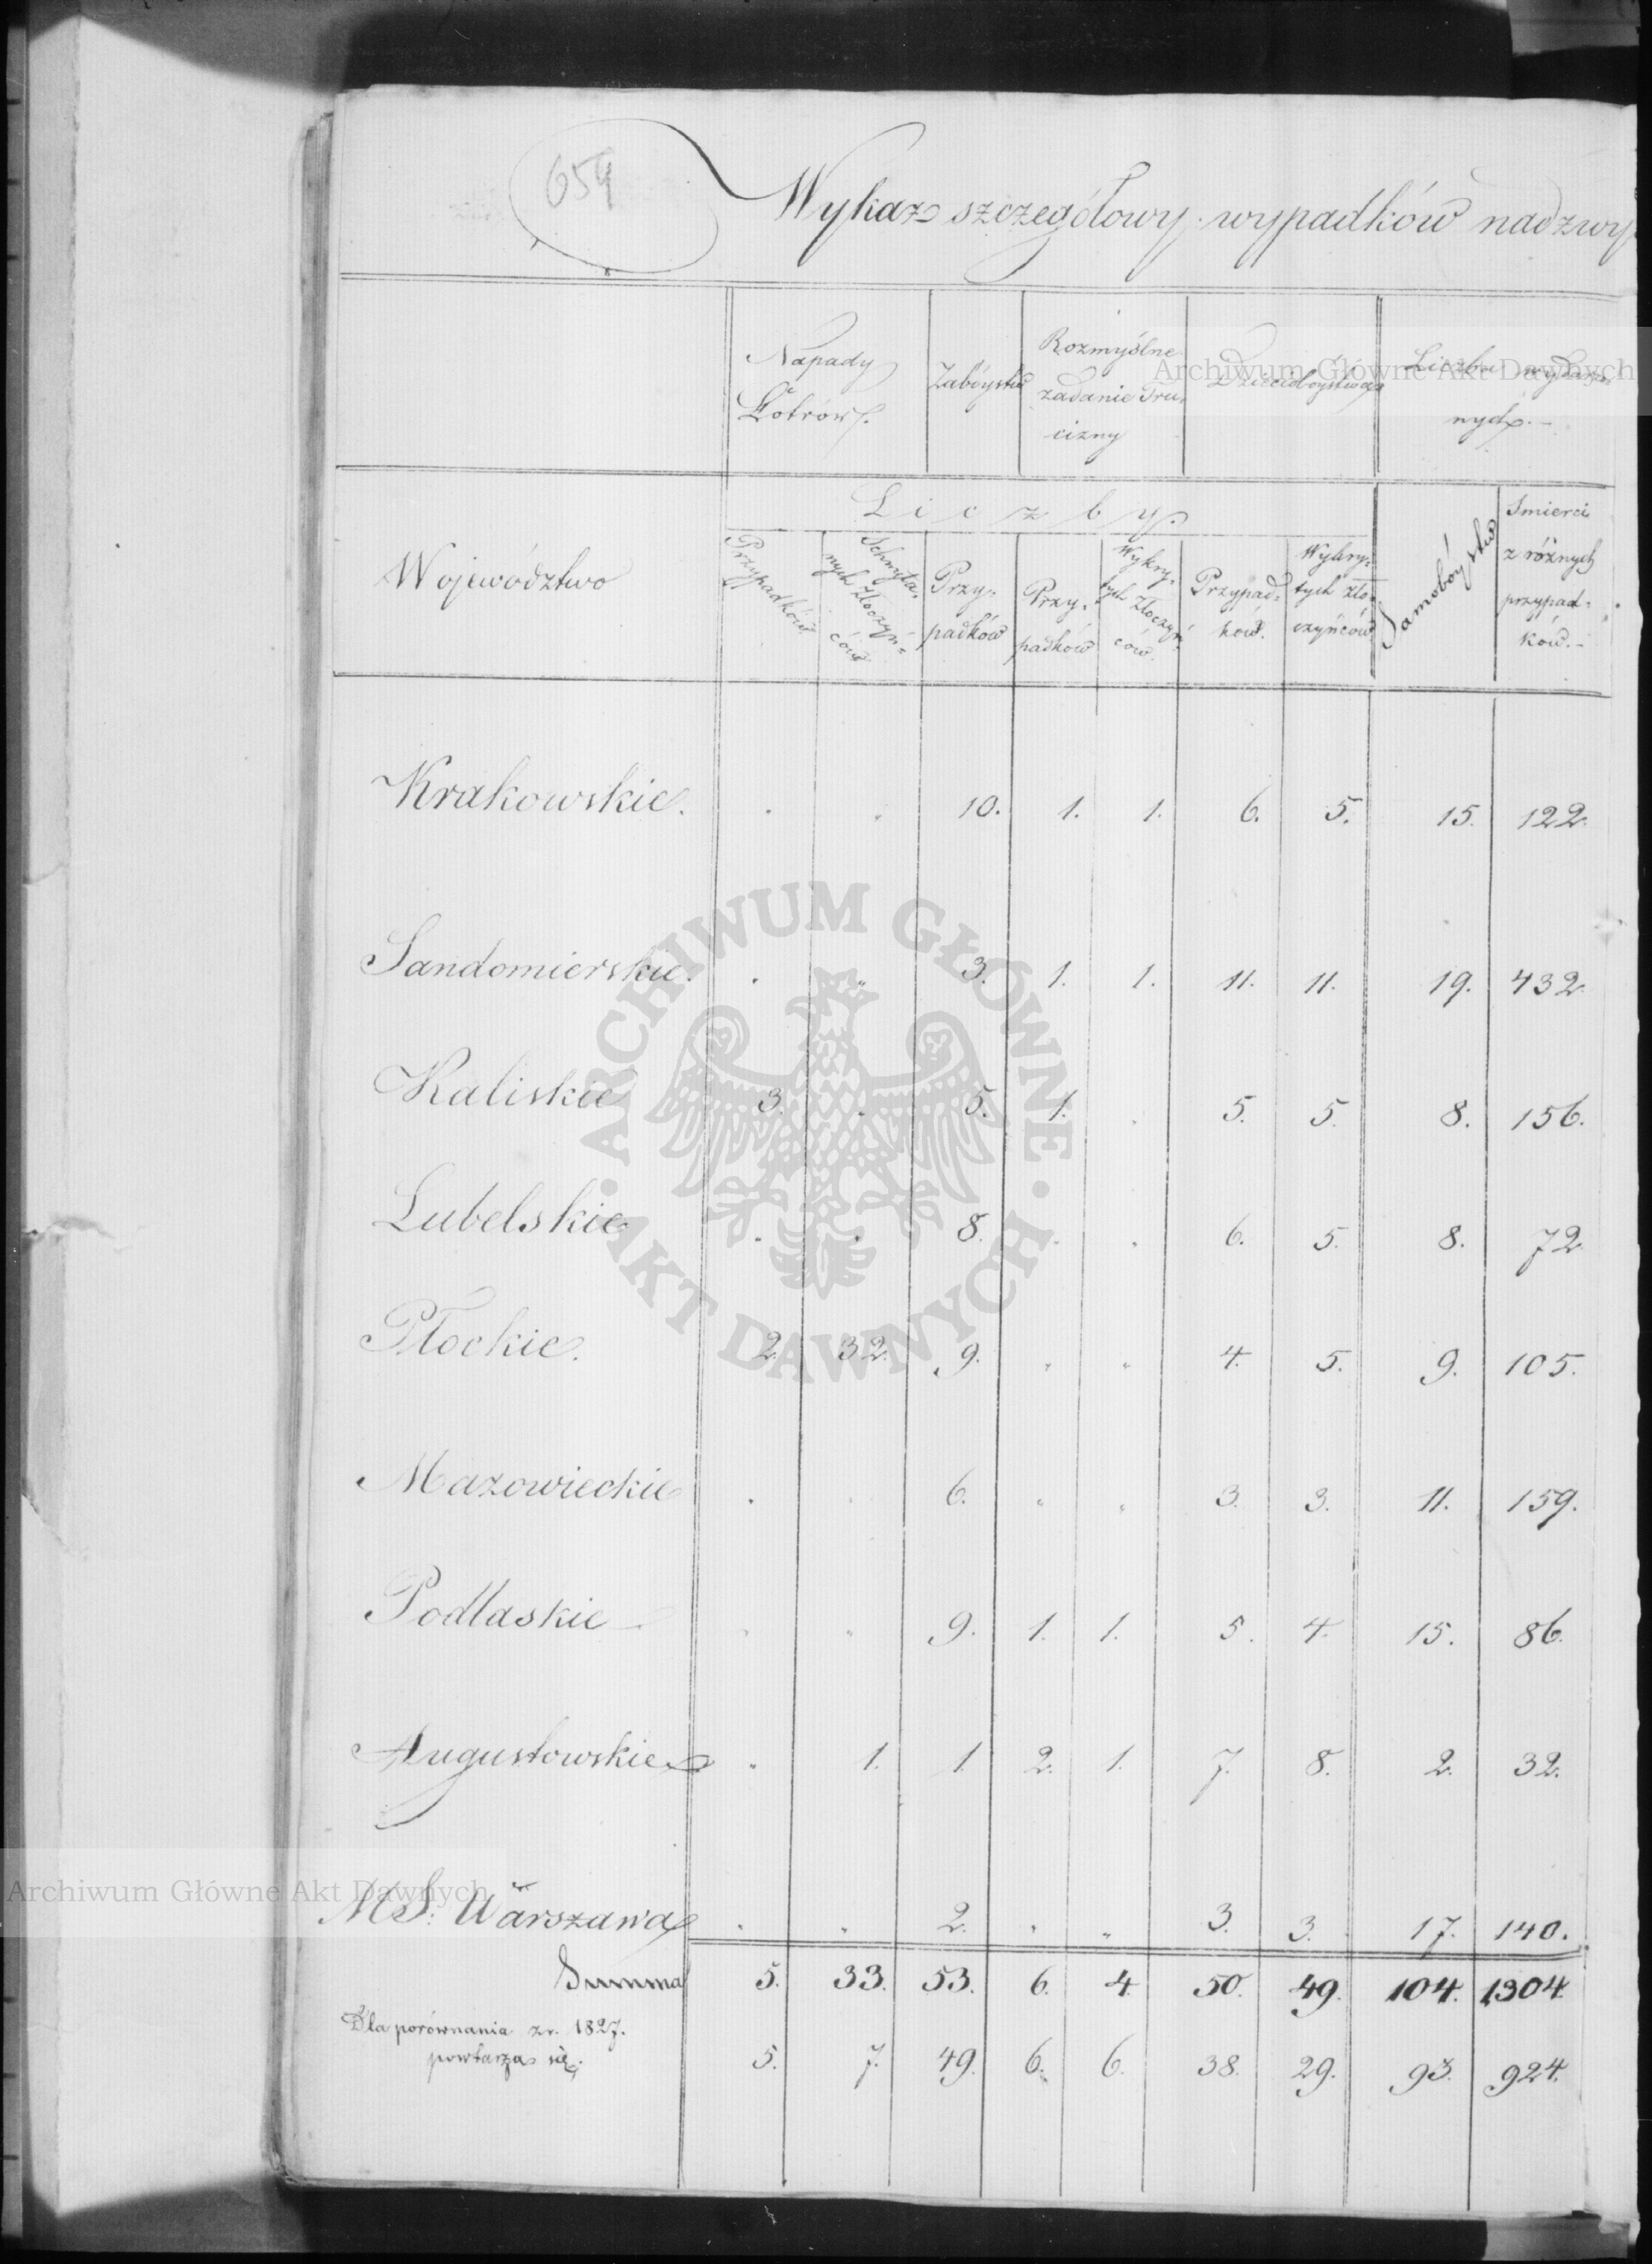 654
Wykaz szczegółowy wypadków nadzwy
Napady
Łotrów.
Zabóystw
Rozmyślne
zadanie Tru-
cizny
Dzieciobóystwa
Liczba wydarzo-
nych.-
Archiwum Główne Akt Dawnych
Województwo
Liczby
Przypadków
Schwyta-
nych złoczyń-
ców
Przy-
padków
Przy-
padków
Wykry-
tych złoczyń-
ców.
Przypad-
ków.
Wykry-
tych zło-
czyńców
Samobóystw
Smierci
z różnych
przypad-
ków.-
Krakowskie. . . 10. 1. 1. 6. 5. 15. 122.
Sandomierskie. . „ 3. 1. 1. 11. 11. 19. 432.
Kaliskie 3. . 5. 1. . 5. 5. 8. 156.
Lubelskie . . 8. . . 6. 5. 8. 72
Płockie. 2. 32. 9. „ „ 4. 5. 9. 105.
Mazowieckie . . 6. „ „ 3. 3. 11. 159.
Podlaskie . „ 9. 1. 1. 5. 4. 15. 86.
Augustowskie „ 1. 1. 2. 1. 7. 8. 2. 32.
M S: Warszawa . „ 2. . „ 3. 3. 17. 140.
Summa 5. 33. 53. 6. 4. 50. 49. 104. 1304.
Dla porównania z r. 1827.
powtarza się. 5. 7. 49. 6. 6. 38. 29. 93. 924.
ARCHIWUM GŁÓWNE
AKT DAWNYCH
Archiwum Główne Akt Dawnych